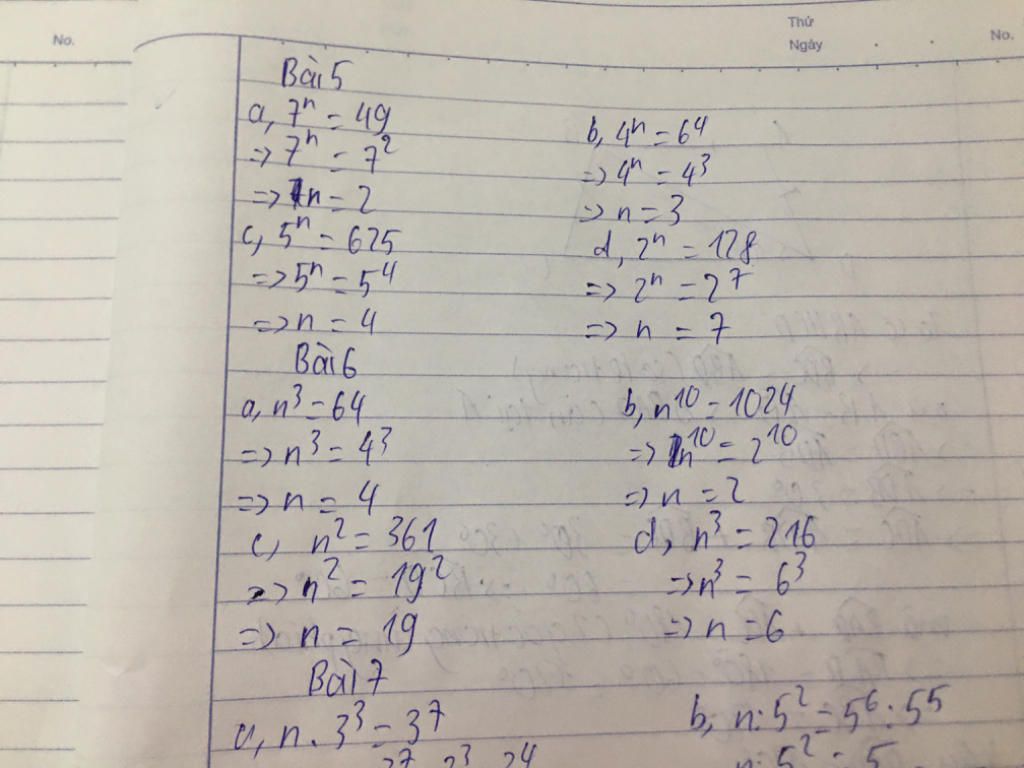 No.
Thứ
Ngày
No.
Bài 5
a, 7ⁿ = 49
=> 7ⁿ = 7²
=> n = 2
b, 4ⁿ = 64
=> 4ⁿ = 4³
=> n = 3
c, 5ⁿ = 625
=> 5ⁿ = 5⁴
=> n = 4
d, 2ⁿ = 128
=> 2ⁿ = 2⁷
=> n = 7
Bài 6
a, n³ = 64
=> n³ = 4³
=> n = 4
b, n¹⁰ = 1024
=> n¹⁰ = 2¹⁰
=> n = 2
c, n² = 361
=> n² = 19²
=> n = 19
d, n³ = 216
=> n³ = 6³
=> n = 6
Bài 7
a, n . 3³ = 3⁷
b, n : 5² = 5⁶ : 5⁵
n : 5² = 5